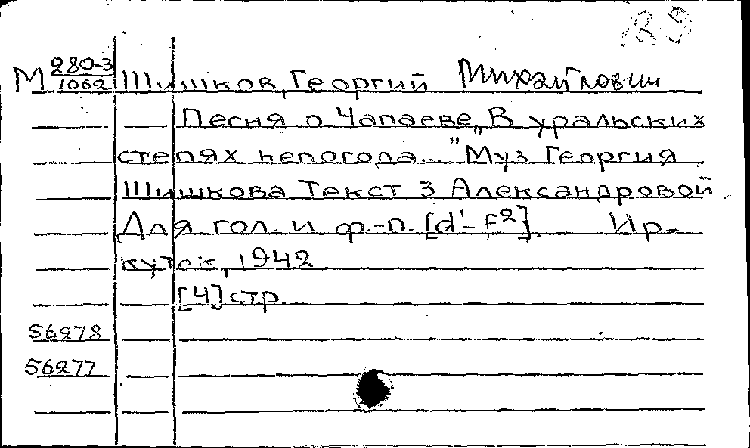 189
М 280-3/1062 Шишков, Георгий Михайлович
Песня о Чапаеве „В уральских
степях непогода..." Муз Георгия
Шишкова Текст З Александровой
Для гол. и ф.-п. [d¹-f²]. Ир-
кутск, 1942
[4] стр.
56278
56277